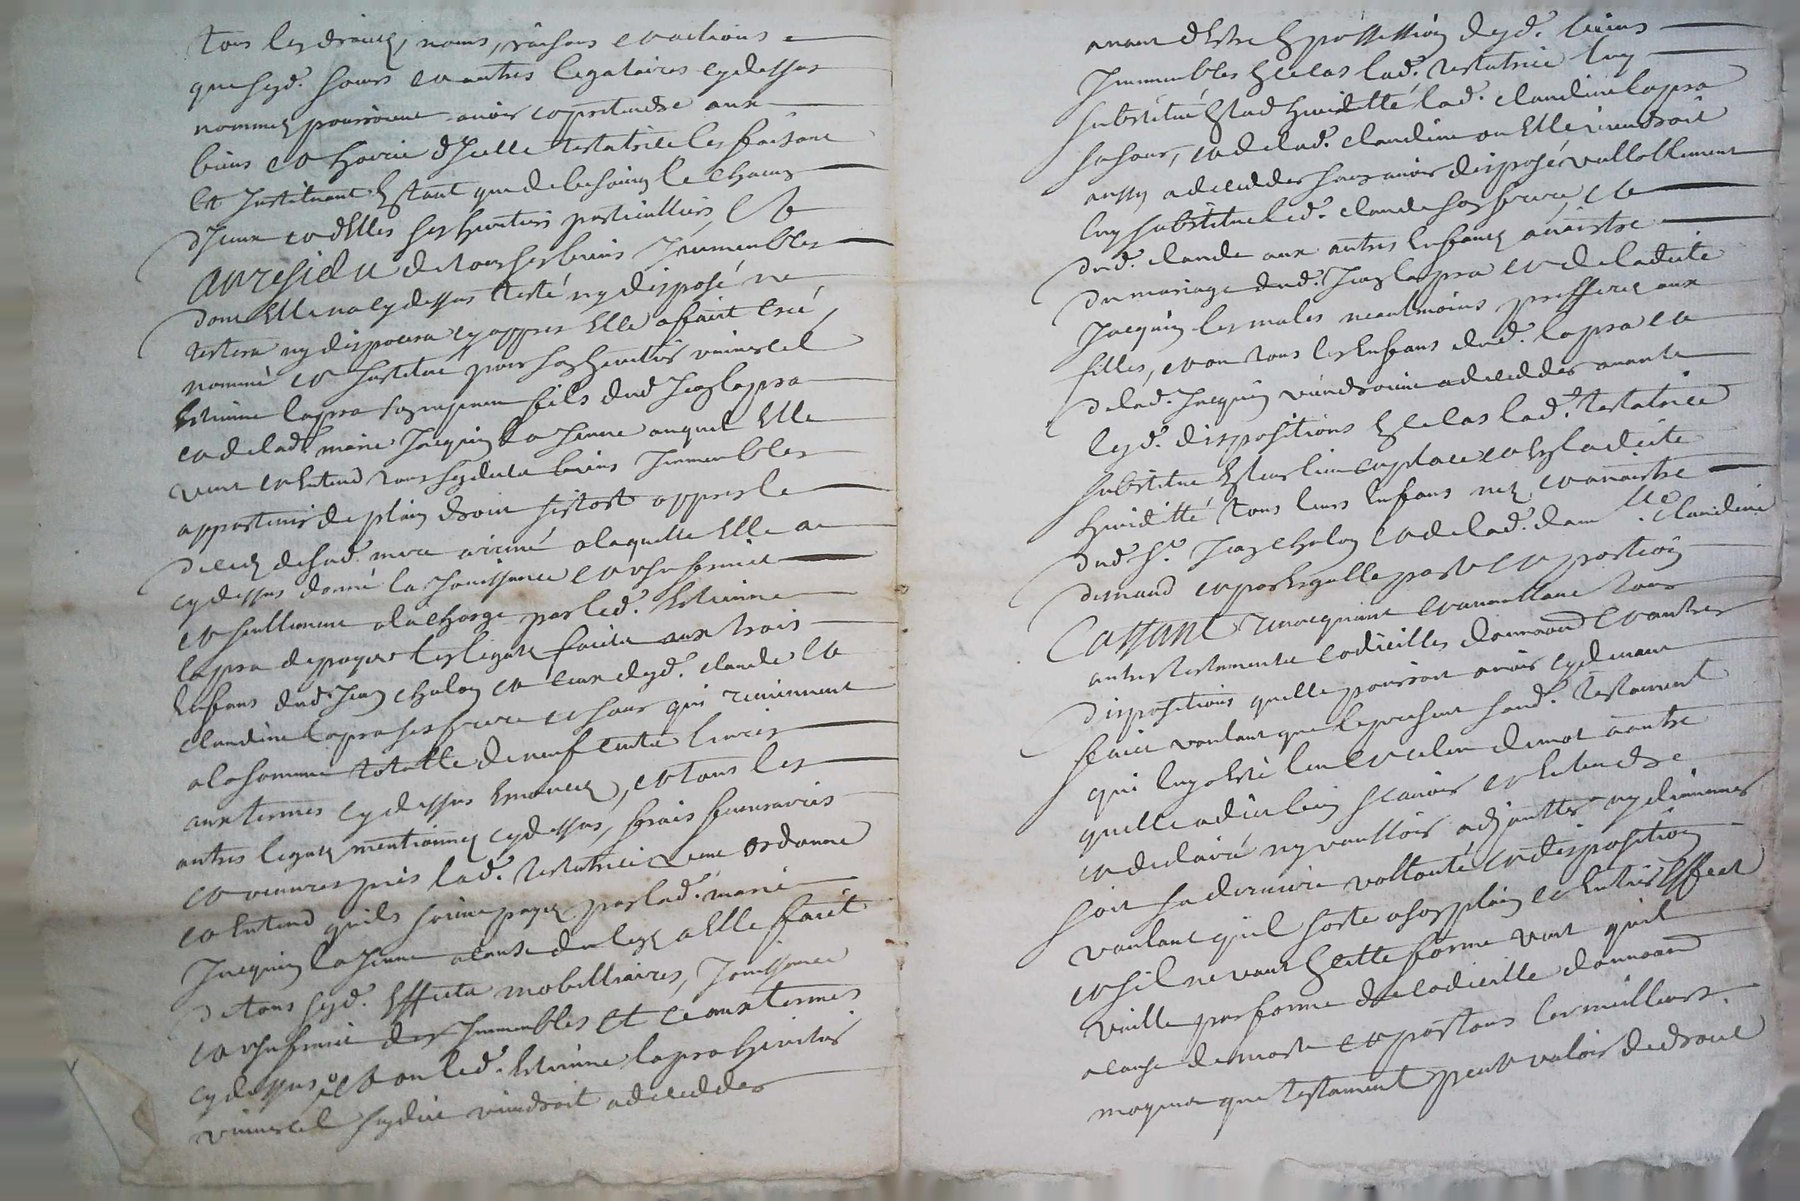 tous les droicts, noms, raisons et actions
que sesd. soeurs et autres legataires cydessus
nommez pourroient avoir et pretendre aux
biens et hoirie d'Icelle testatrice les faisant
et Instituant Estant que de besoing le chacung
d'Iceux et d'Elles ses heritiers particulliers Et
Au residu de tous ses biens Immeubles
dont Elle na cydessus testé ny disposé ne
testera ny disposera cy appres Elle a faict creé,
nommé et Institue pour son heritier universel
Estienne lapra son nepveu fils dud Jean lapra
et de lad. marie Jacquin la Jeune auquel Elle
veut et Entend tous sesdicts biens Immeubles
appartenir de plain droict sitost appres le
deces de sad. mere arrivé a laquelle Elle a
cydessus donné la Jouissance et usufruict
et seullement a la charge par led. Estienne
lapra de payer les legats faicts aux trois
Enfans dud. Jean chalon et ceux desd. claude Et
claudine lapra ses frere et soeur qui reviennent
a la somme totalle de neuf cents livres
aux termes cydessus Enoncez, et tous les
autres legats mentionnez cydessus, frais funeraires
et oeuvres pies lad. testatrice veut ordonne
et Entend quils soient payez par lad. marie
Jacquin la Jeune a cause du legs a Elle faict
de tous sesd. Effects mobilliaires, Jouissance
et usufruict des Immeubles et ce aux termes
cydessus Et ou led. Estienne lapra heritier
universel susdict viendroit a decedder
avant d'Estre En possession desd. biens
Immeubles En ce cas lad. testatrice luy
substitue En lad hereditté lad. claudine lapra
sa soeur, et de lad. claudine ou Elle viendroit
aussy a decedder sans avoir disposé vallablement
luy substitue led. claude son frere et
dud. claude aux autres Enfans a naistre
du mariage dud. Jean lapra et de ladicte
Jacquin les males neantmoins prefferez aux
filles, et ou tous les Enfans dud. lapra et
de lad. Jacquin viendroient a decedder avant
lesd. dispositions En ce cas lad. testatrice
substitue En leur lieu et place et En ladicte
heriditté tous leurs Enfans nez et a naistre
dud. Sr. Jean chalon et de lad. dam.lle claudine
et par Esgalle part et portion
Cassant revocquant et annullant tous
autres testaments codicilles donnaons et autres
dispositions quelle pourroit avoir cydevant
faict voulant que le present sond. testament
qui luy a Esté leu et releu de mot a autre
quelle a dict bien scavoir et Entendre
et declaré ny voulloir adjoutter ny diminuer
soit sa derniere vollonté et disposition
voulant qu'il sorte a son plain et Entier Effect
et sil ne vaut En cette forme veut quil
vaille par forme de codicille donnaon
a cause de mort et par tous les meilleurs
moyens que testament peut valoir de droict